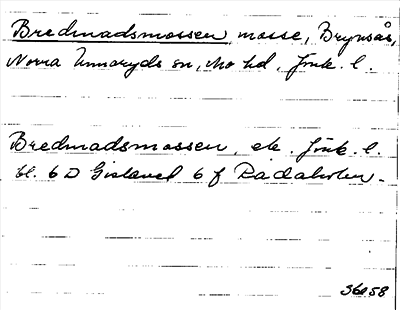 Bredmadsmossen, mosse, Brynsås,
Norra Unnaryds sn, Mo hd, Jönk. l.
Bredmadsmossen, ek. Jönk. l.
bl. 6 D Gislaved 6 f Rådaholm.
58